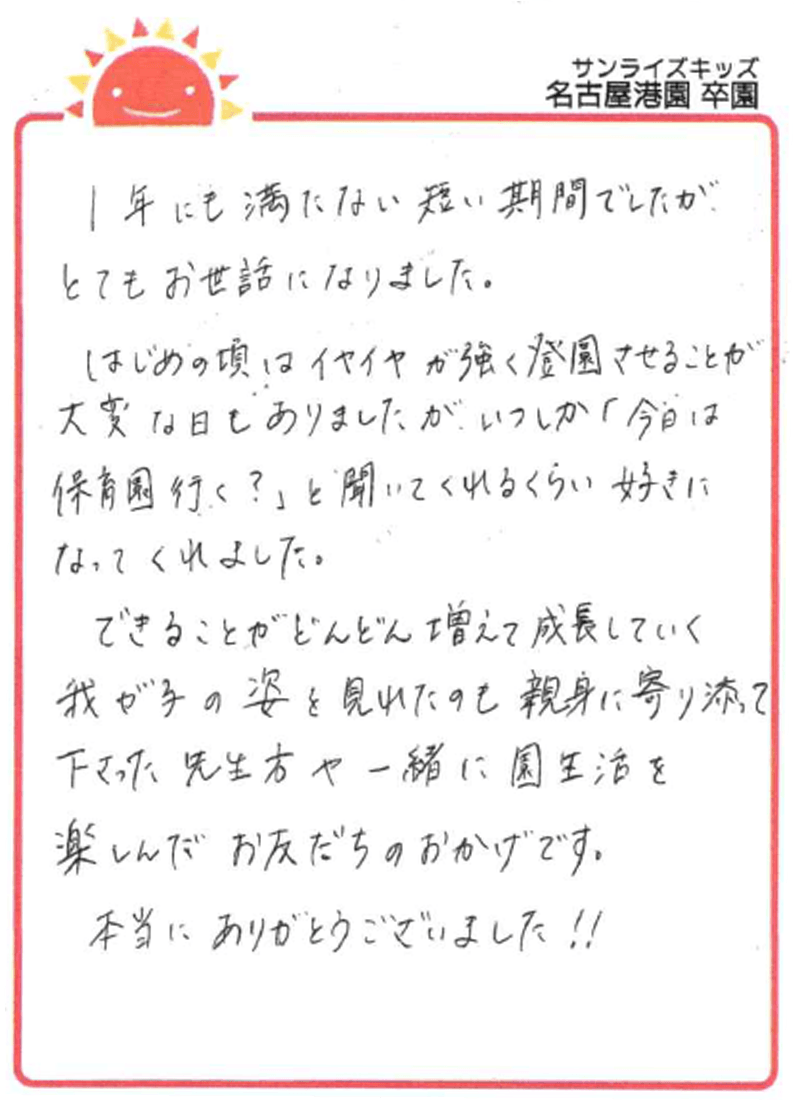 サンライズキッズ
名古屋港園 卒園
1年にも満たない短い期間でしたが、
とてもお世話になりました。
はじめの頃はイヤイヤが強く登園させることが
大変な日もありましたが、いつしか「今日は
保育園行く?」と聞いてくれるくらい好きに
なってくれました。
できることがどんどん増えて成長していく
我が子の姿を見れたのも親身に寄り添って
下さった先生方や一緒に園生活を
楽しんだお友だちのおかげです。
本当にありがとうございました!!